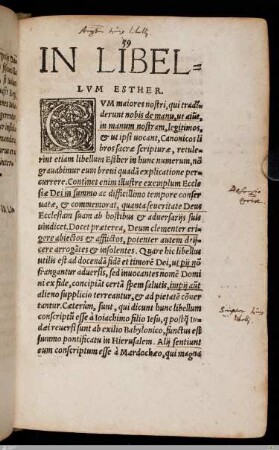 59
IN LIBEL=
LVM ESTHER.
CVM maiores nostri, qui tradi-
derunt nobis de manu, ut aiũt,
in manum nostram, legitimos,
& ut ipsi uocant, Canonicos li
bros sacræ scripturæ, retule-
rint etiam libellum Esther in hunc numerum, nõ
grauabimur eum breui quadã explicatione per-
currere. Continet enim illustre exemplum Eccle
siæ Dei in summo ac afflictissimo tempore conser
uatæ, & commemorat, quanta seueritate Deus
Ecclesiam suam ab hostibus & aduersarijs suis
uindicet. Docet præterea, Deum clementer eri-
gere abiectos & afflictos, potenter autem dij-
cere arrogãtes & insolentes. Quare hic libellus
utilis est ad docendã fidẽ et timorẽ Dei, ut pij nõ
frangantur aduersis, sed inuocantes nomẽ Domi
ni ex fide, concipiãt certã spem salutis, impij aũt
alieno supplicio terreantur, & ad pietatẽ cõuer
tantur. Cæterùm, sunt, qui dicunt hunc libellum
conscriptũ esse à Ioiachimo filio Iesu, q postq̃ Iu-
dæi reuersi sunt ab exilio Babylonico, functus est
summo pontificatu in Hierusalem. Alij sentiunt
eum conscriptum esse à Mardochæo, qui magna